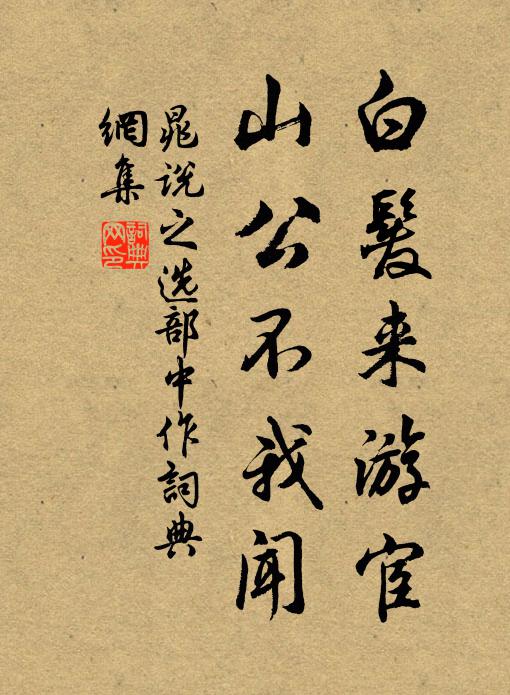 白髮来游宦
山公不我聞
晁说之选部中作詞典
網集
詞典
网印